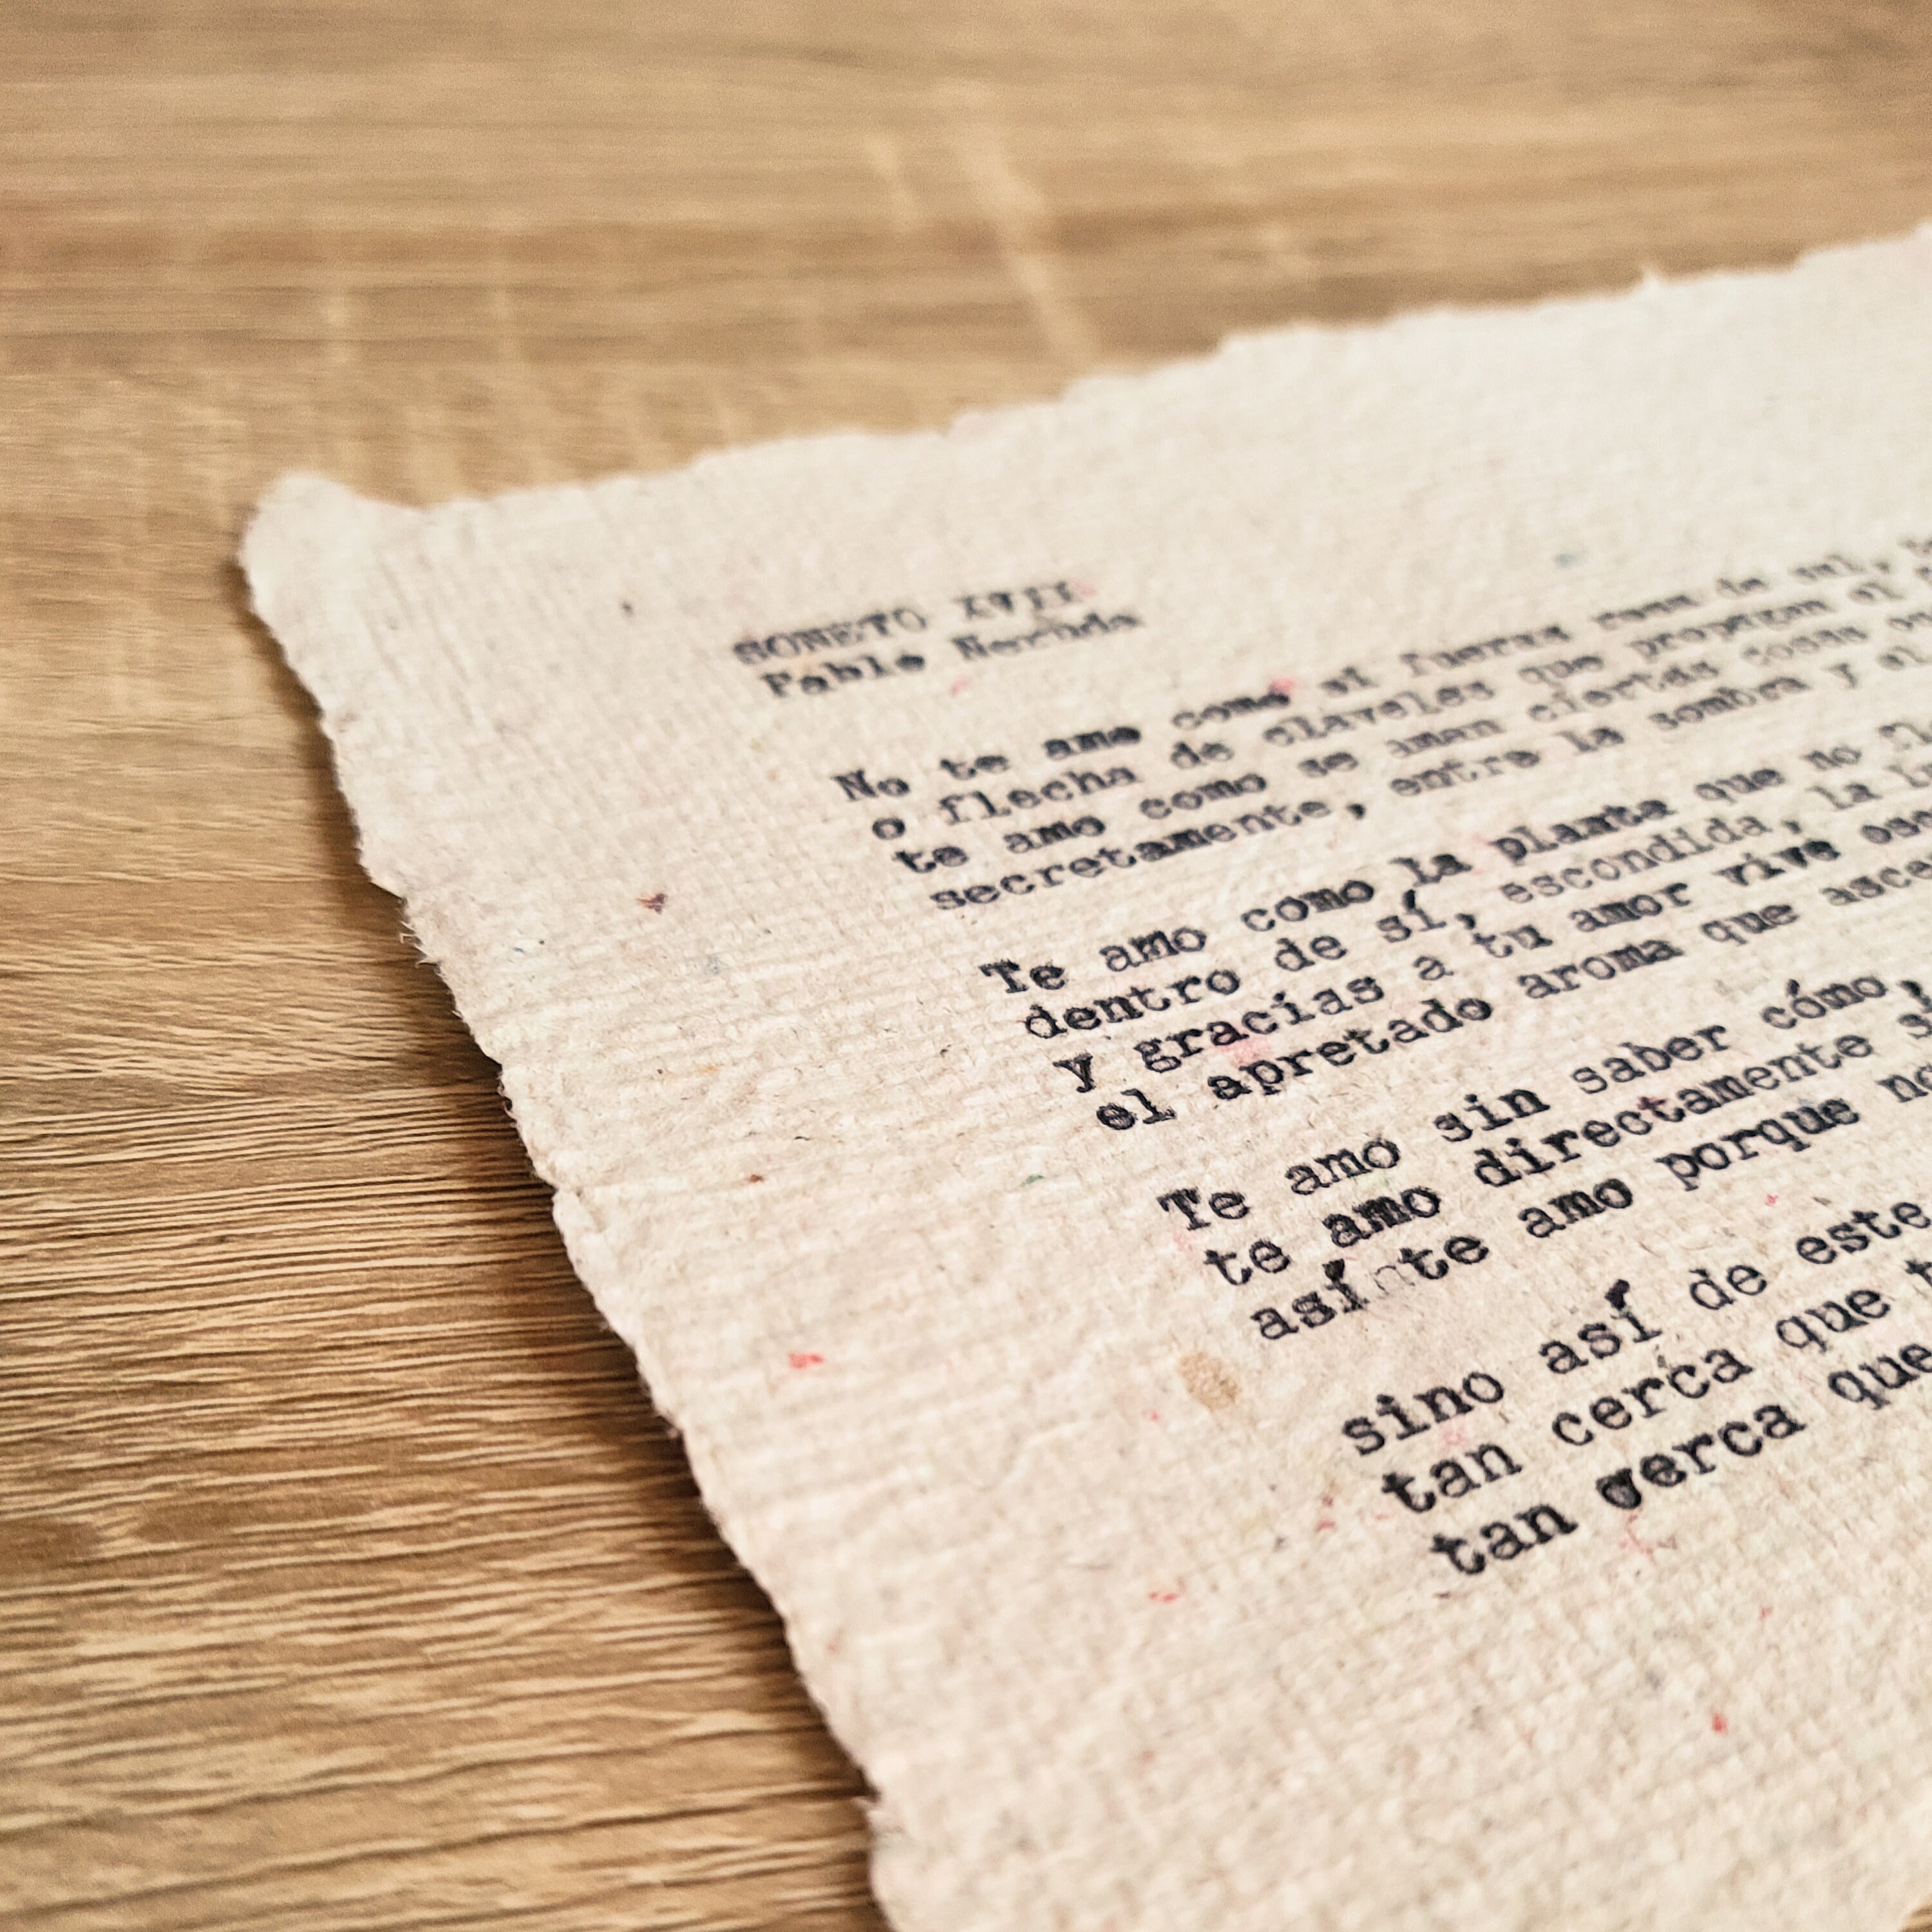 SONETO XVII
Pablo Neruda
No te amo como si fueras rosa de sal,
o flecha de claveles que propagan el
te amo como se aman ciertas cosas
secretamente, entre la sombra y el
Te amo como la planta que no
dentro de sí, escondida, la
y gracias a tu amor vive
el apretado aroma que
Te amo sin saber cómo,
te amo directamente
así te amo porque
sino así de este
tan cerca que
tan cerca que